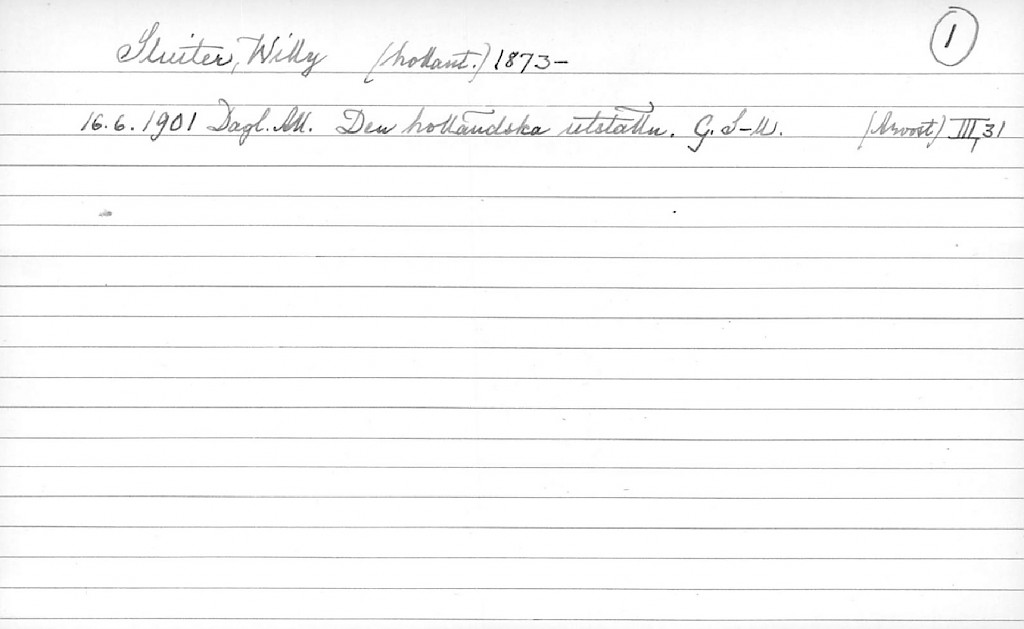 1
Sluiter, Willy (hollant.) 1873-
16.6.1901 Dagl. All. Den holländska utställn. G. S-ll. (Arvost) III, 31